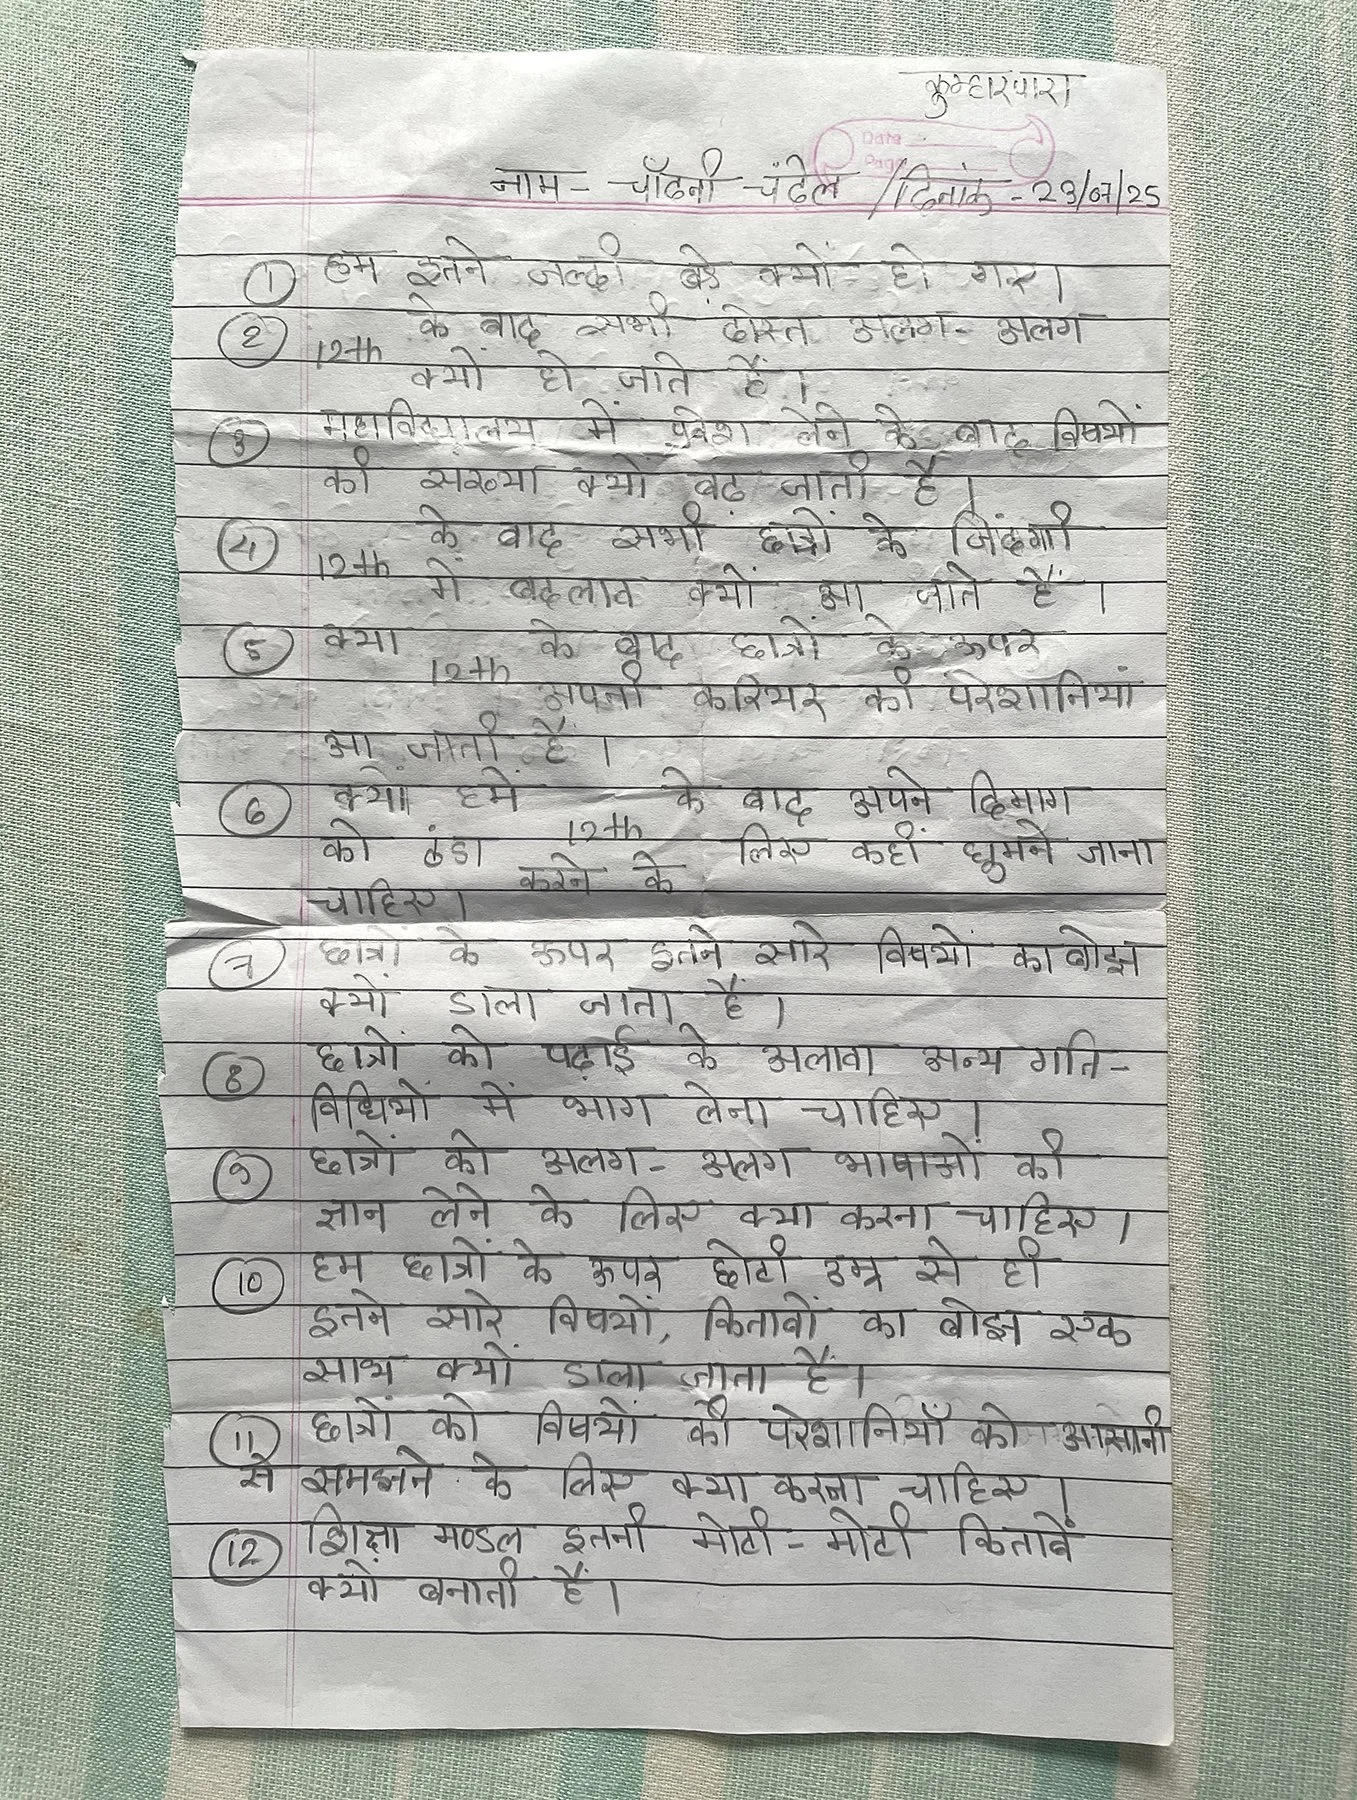 कुम्हारपारा
Date
Page
नाम - चाँदनी चंदेल / दिनांक - 23/07/25
① हम इतने जल्दी बड़े क्यों हो गए।
② 12th के बाद सभी दोस्त अलग-अलग
क्यों हो जाते हैं।
③ महाविद्यालय में प्रवेश लेने के बाद विषयों
की संख्या क्यों बढ़ जाती है।
④ 12th के बाद सभी छात्रों के जिंदगी
में बदलाव क्यों आ जाते हैं।
⑤ क्या 12th के बाद छात्रों के ऊपर
अपनी करियर की परेशानियां
आ जाती हैं।
⑥ क्यों हमें 12th के बाद अपने दिमाग
को ठंडा करने के लिए कहीं घुमने जाना
चाहिए।
⑦ छात्रों के ऊपर इतने सारे विषयों का बोझ
क्यों डाला जाता हैं।
⑧ छात्रों को पढ़ाई के अलावा अन्य गति-
विधियों में भाग लेना चाहिए।
⑨ छात्रों को अलग-अलग भाषाओं की
ज्ञान लेने के लिए क्या करना चाहिए।
⑩ हम छात्रों के ऊपर छोटी उम्र से ही
इतने सारे विषयों, किताबों का बोझ एक
साथ क्यों डाला जाता हैं।
⑪ छात्रों को विषयों की परेशानियाँ को आसानी
से समझने के लिए क्या करना चाहिए।
⑫ शिक्षा मण्डल इतनी मोटी-मोटी किताबें
क्यों बनाती हैं।